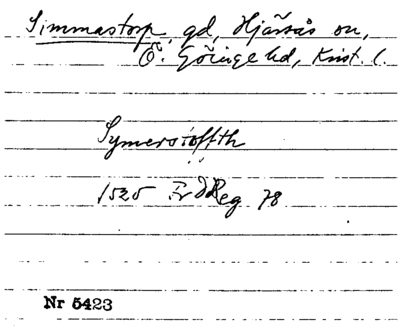 Simmastorp, gd, Hjärsås sn,
Ö. Göinge hd, Krist. l.
Symerstoffth
1525 FrdReg 78
Nr 5423